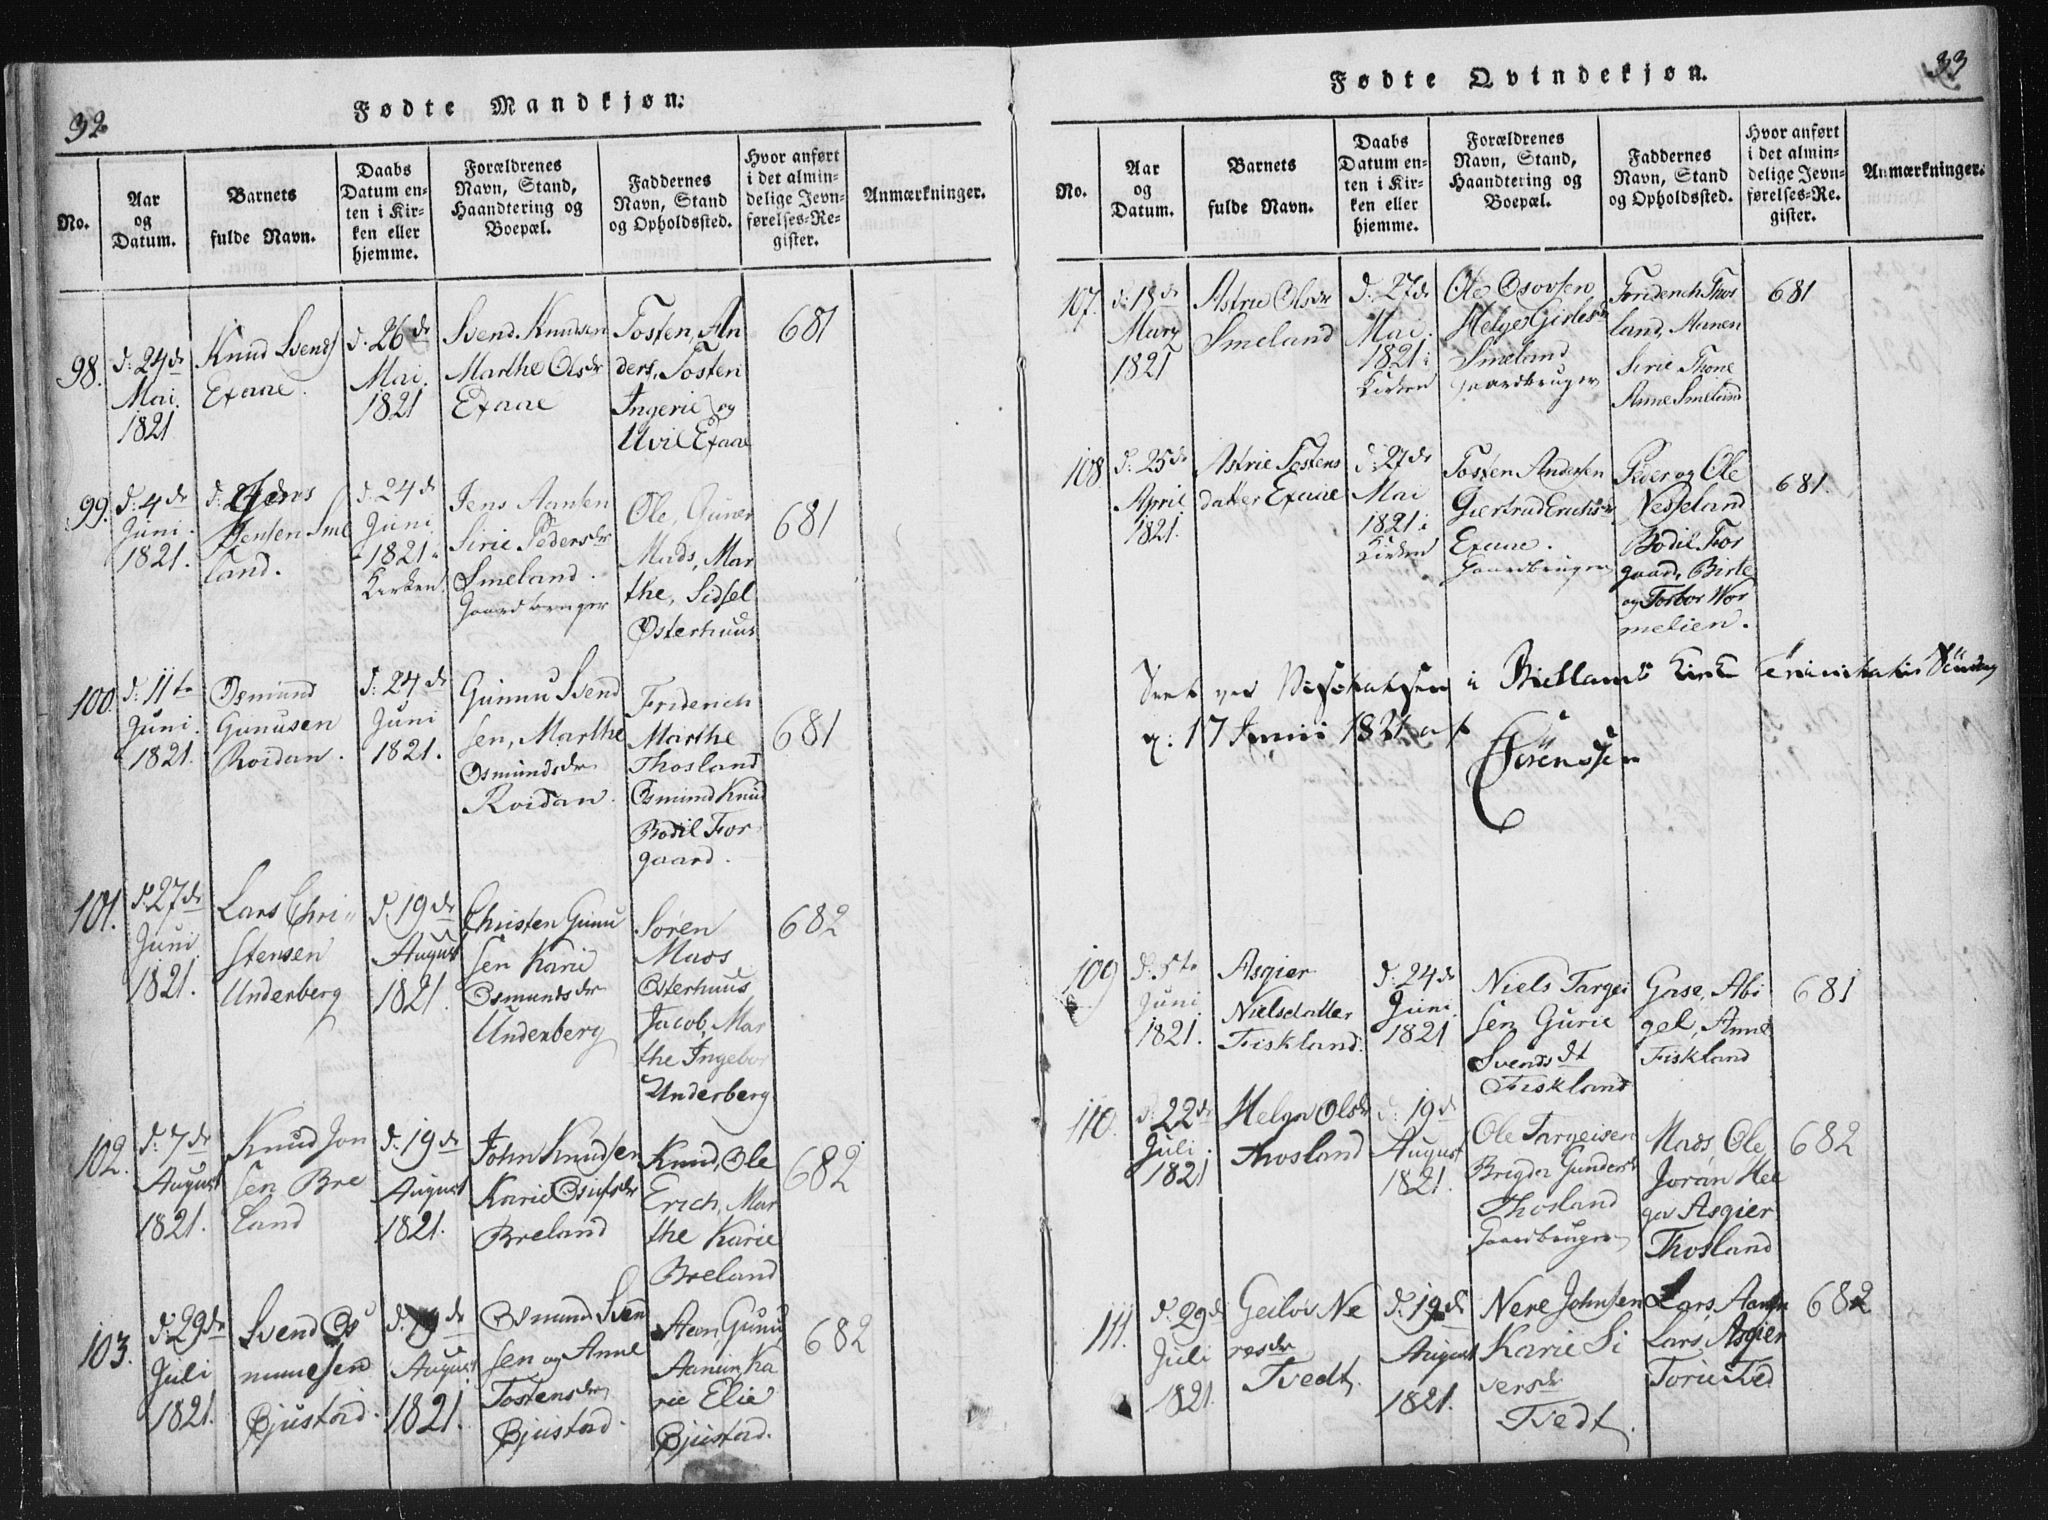 32
Fødte Mandkjøn.
No.
Aar
og
Datum.
Barnets
fulde Navn.
Daabs
Datum en-
ten i Kir-
ken eller
hjemme.
Forældrenes
Navn, Stand,
Haandtering og
Boepæl.
Faddernes
Navn, Stand
og Opholdssted.
Hvor anført
i det almin-
delige Jevn-
førelses-Re-
gister.
Anmærkninger.
98.
d: 24de
Mai.
1821
Knud Svends
Exaae.
d. 26de
Mai.
1821
Svend Knudsen
Marthe Olsdr
Exaae
Tosten, An
ders, Tosten
Ingerie og
Uvil Exaae
681
99.
d: 4de
Juni.
1821.
Jens
Jensen Sme
land.
d. 24de
Juni
1821 i
Kirken
Jens Aansen
Sirie Pedersdr
Smeland.
Gaardbruger
Ole, Guner
Mads, Mar
the, Sidsel
Østerhuus
681
100.
d: 11te
Juni.
1821.
Osmund
Gunusen
Roidan.
d: 24de
Juni
1821.
Gunnu Svend
sen, Marthe
Osmundsdr
Roidan.
Friderich
Marthe
Thosland
Osmund Knud
Bodil For
gaard.
681
101.
d. 27de
Juni
1821.
Lars Chri-
stensen
Underberg
d. 19de
August
1821.
Christen Gunu
sen Karie
Osmundsdr
Underberg
Søren
Mads
Østerhuus
Jacob, Mar
the Ingebor
Underberg
682
102.
d. 7de
August
1821.
Knud Jon
sen Bre
land
d. 19de
August
1821.
John Knudsen
Karie Osufsdr
Breland
Knud, Ole
Erich, Mar
the Karie
Breland
682
103.
d. 29de
Juli
1821.
Svend Os
mundsen
Bjustad.
d. 19de
August
1821.
Osmund Sven
sen og Anne
Tostensdr
Bjustad.
Aan, Gunu
Aanun, Ka
rie Elie
Bjustad.
682
33
Fødte Qvindekjøn.
No.
Aar
og
Datum.
Barnets
fulde Navn.
Daabs
Datum en-
ten i Kir-
ken eller
hjemme.
Forældrenes
Navn, Stand,
Haandtering og
Boepæl.
Faddernes
Navn, Stand
og Opholdssted.
Hvor anført
i det almin-
delige Jevn-
førelses-Re-
gister.
Anmærkninger.
107.
d: 18de
Marz
1821
Astrie Olsdr
Smeland
d. 27de
Mai.
1821 i
Kirken
Ole Osovsen
Helge Gislesdr
Smeland
Gaardbruger
Friderich Thos
land, Aanen
Sirie Thone
Anne Smeland
681
108
d. 25de
April
1821.
Astrie Tostens
datter Exaae
d. 27de
Mai
1821 i
Kirken
Tosten Andersen
Giertrud Erichsdr
Exaae.
Gaardbruger
Peder og Ole
Nesseland
Bodil For
gaard, Birte
og Torbor Wor
melien.
681.
Seet ved Visitatsen i Biellands Kirke Trinitatis Søndag
d: 17 Junii 1821 af
Sørenssen
109
d. 5te
Juni
1821.
Asgier
Nielsdatter
Fiskland.
d. 24de
Juni
1821
Niels Targei
sen Gurie
Svendsdt
Fiskland
Gase, Abi
gel, Anne
Fiskland
681
110.
d. 22de
Juli.
1821
Helga Olsdr
Thosland
d. 19de
August
1821.
Ole Targeisen
Bregda Gundersd
Thosland
Gaardbruger
Mads, Ole
Joran Hel
ga Asgier
Thosland
682
111.
d. 29de
Juli
1821.
Geilov Ne
resdr
Tvedt.
d. 19de
August
1821.
Nere Johnsen
Karie Si
versdr
Tvedt.
Lars, Aanen
Lars, Asgier
Torie Tved
682